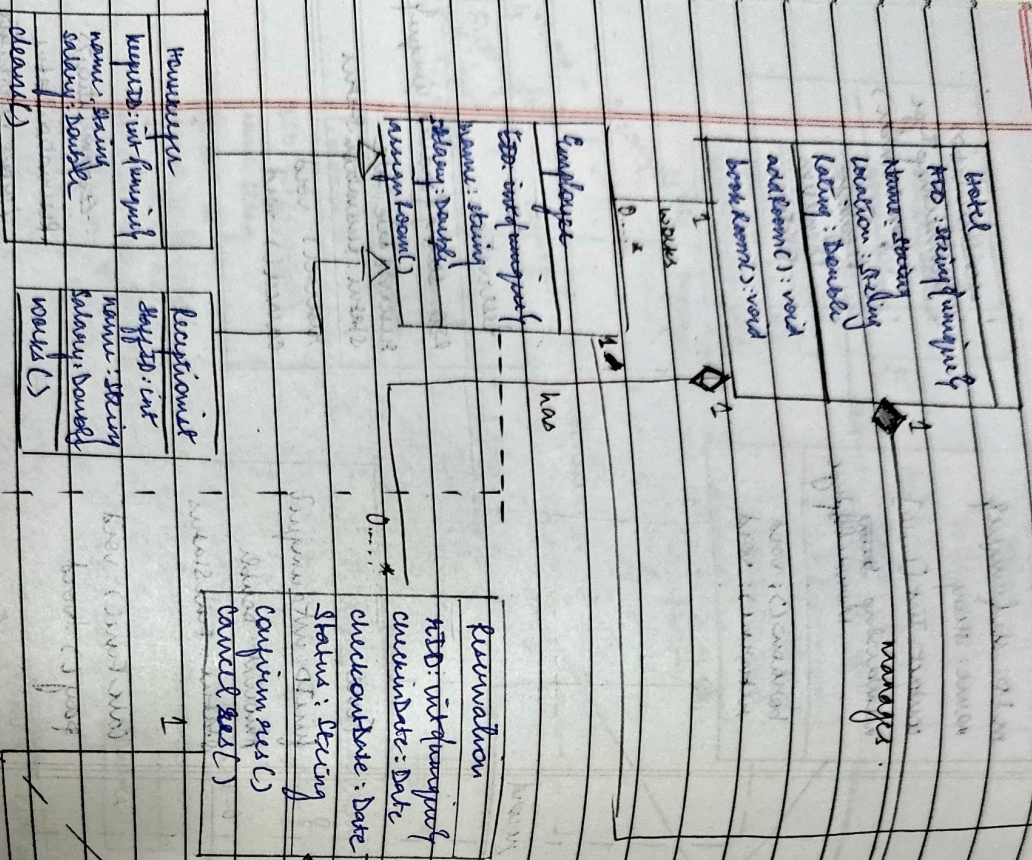 Hotel
HID : String {unique}
Name : String
Location : String
Rating : Double
addRoom() : void
bookRoom() : void
1
manages
1
1
works
0...*
1
has
Employee
EID : int {unique}
name : string
salary : Double
assignRoom()
0....*
Reservation
RID : int {unique}
checkinDate : Date
checkoutDate : Date
Status : String
confirm res()
cancel res()
1
keepID : int {unique}
name : string
salary : Double
cleans()
Receptionist
staffID : int
name : string
salary : Double
works()